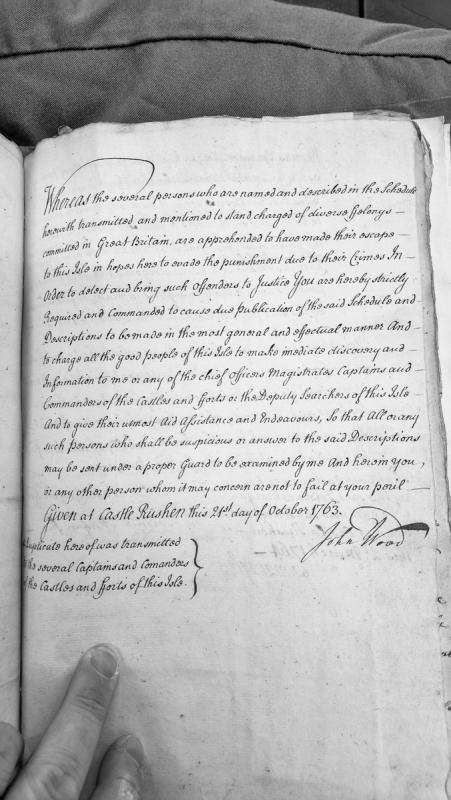 Whereas the several persons who are named and described in the Schedule
herewith transmitted and mentioned to stand charged of diverse ffelonys –
committed in Great Britain, are apprehended to have made their escape –
to this Isle in hopes here to evade the punishment due to their Crimes In –
Order to detect and bring such Offenders to Justice You are hereby strictly
Required and Commanded to cause due publication of the said Schedule and
Descriptions to be made in the most general and effectual manner And –
to charge all the good people of this Isle to make imediate discovery and –
Information to me or any of the chief Officers Magistrates Captains and –
Commanders of the Castles and fforts or the Deputy Searchers of this Isle
And to give their utmost Aid Assistance and Endeavours, so that All or any
such persons who shall be suspicious or answer to the said Descriptions
may be sent under a proper Guard to be examined by me And herein You,
or any other person whom it may concern are not to fail at your peril –
Given at Castle Rushen this 21st day of October 1763.
John Wood
Duplicate hereof was transmitted
the several Captains and Comanders
the Castles and fforts of this Isle.